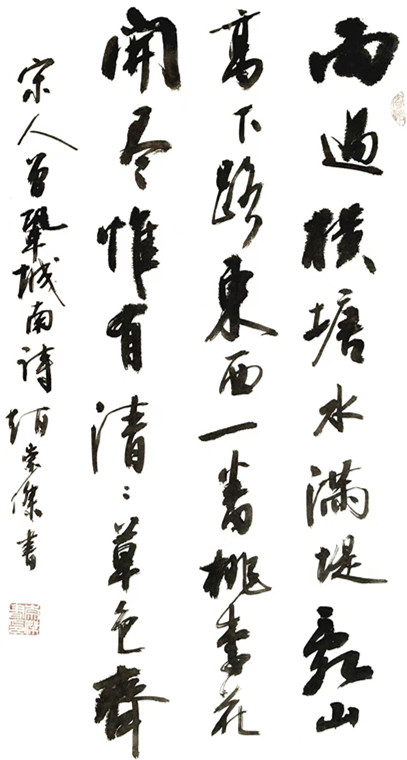 雨過橫塘水滿堤亂山
高下路東西一番桃李花
開尽惟有清〻草色齊
宋人曾鞏城南詩 崇傑書